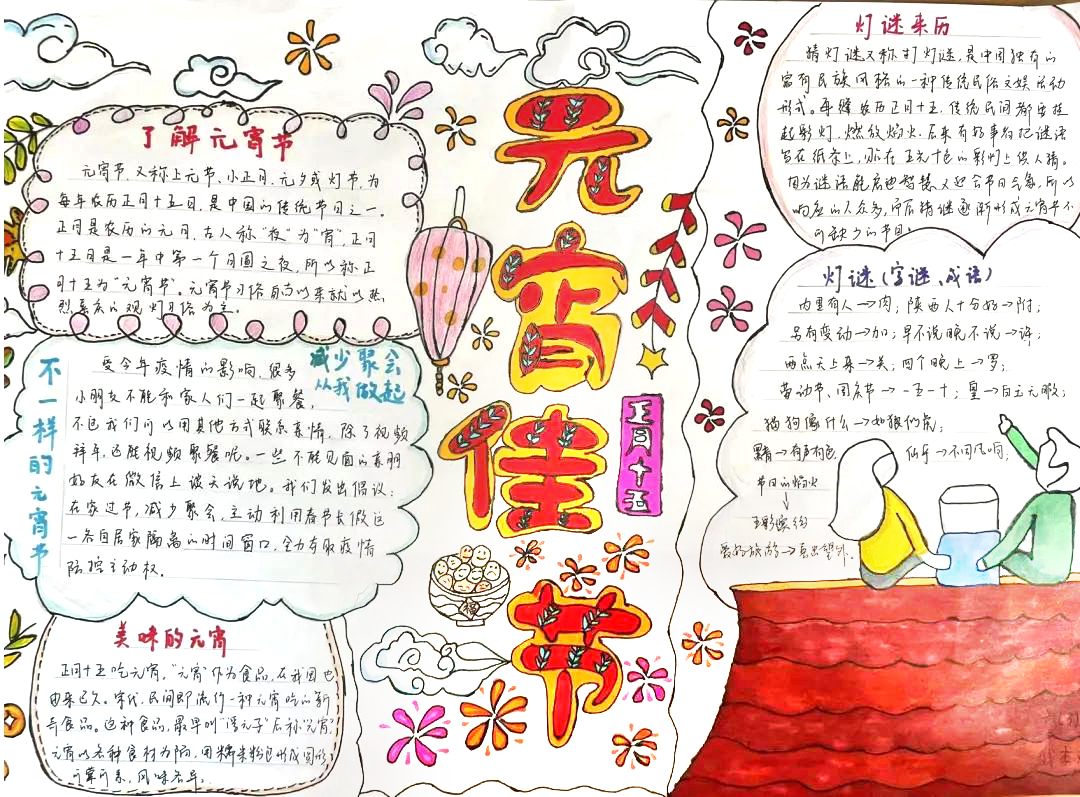 了解元宵节
元宵节,又称上元节、小正月、元夕或灯节,为
每年农历正月十五日,是中国的传统节日之一。
正月是农历的元月,古人称“夜”为“宵”,正月
十五日是一年中第一个月圆之夜,所以称正
月十五为“元宵节”。元宵节习俗自古以来就以热
烈喜庆的观灯习俗为主。
不一样的元宵节
减少聚会
从我做起
受今年疫情的影响,很多
小朋友不能和家人们一起聚餐,
不过我们可以用其他方式联系亲情,除了视频
拜年,还能视频聚餐呢。一些不能见面的亲朋
好友在微信上谈天说地。我们发出倡议:
在家过节,减少聚会,主动利用春节长假这
一各自居家隔离的时间窗口,全力夺取疫情
防控主动权。
美味的元宵
正月十五吃元宵,“元宵”作为食品,在我国也
由来已久。宋代,民间即流行一种元宵吃的新
奇食品。这种食品,最早叫“浮元子”后称“元宵”,
元宵以各种食材为馅,用糯米粉包成圆形,
可荤可素,风味各异。
元宵佳节
正月十五
福
灯谜来历
猜灯谜又称打灯谜,是中国独有的
富有民族风格的一种传统民俗文娱活动
形式。每逢农历正月十五,传统民间都要挂
起彩灯,燃放焰火,后来有好事者把谜语
写在纸条上,贴在五光十色的彩灯上供人猜。
因为谜语能启迪智慧又迎合节日气氛,所以
响应的人众多,而后猜谜逐渐形成元宵节不
可缺少的节目。
灯谜(字谜、成语)
内里有人→肉;陕西人十分好→附;
另有变动→加;早不说晚不说→许;
两点天上来→关;四个晚上→罗;
劳动节、国庆节→五一十;皇→白玉无瑕;
猫狗像什么→如狼似虎;
黥→有声有色
仙乐→不同凡响;
节日的焰火
↓
五彩缤纷
爱好旅游→喜出望外.